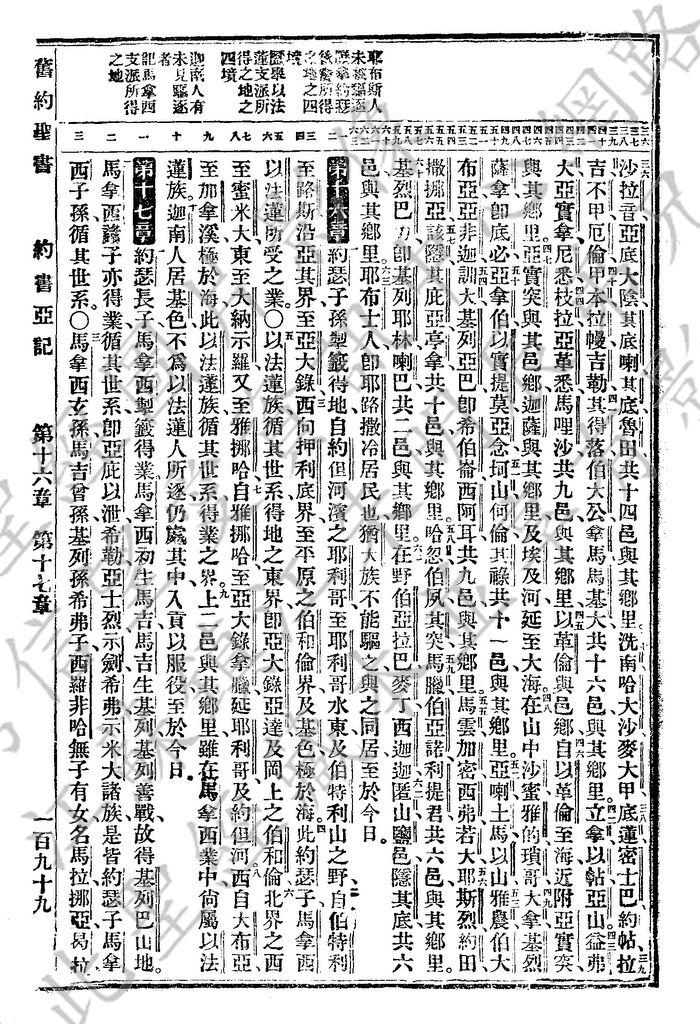 耶布斯人
未被驅逐
約瑟
後裔所得
之地之四
境
以法
蓮支派所
得之地之
四境
迦南人有
未見驅逐
者
馬拿西
支派所得
之地
沙拉音亞底大陰其底喇其底魯田共十四邑與其鄉里洗南哈大沙麥大甲底蓮密士巴約帖拉
吉不甲厄倫甲本拉幔吉勒其得落伯大公拿馬馬基大共十六邑與其鄉里立拿以帖亞山益弗
大亞實拿尼悉枝拉亞革悉馬哩沙共九邑與其鄉里以革倫與邑鄉自以革倫至海近附亞實突
與其鄉里亞實突與其邑鄉迦薩與其鄉里及埃及河延至大海在山中沙蜜雅的瑣哥大拿基烈
薩拿卽底必亞拿伯以實提莫亞念坷山何倫其祿共十一邑與其鄉里亞喇土馬以山雅農伯大
布亞亞非迦訓大基列亞巴卽希伯崙西阿耳共九邑與其鄉里馬雲加密西弗若大耶斯烈約田
撒挪亞該隱其庇亞亭拿共十邑與其鄉里哈忽伯夙其突馬臘伯亞諾利提君共六邑與其鄉里
基烈巴力卽基列耶林喇巴共二邑與其鄉里在野伯亞拉巴麥丁西迦迦匿山鹽邑隱其底共六
邑與其鄉里耶布士人卽耶路撒冷居民也猶大族不能驅之與之同居至於今日
第十六章約瑟子孫掣籤得地自約但河濱之耶利哥至耶利哥水東及伯特利山之野自伯特利
至路斯沿亞其界至亞大錄西向押利底界至平原之伯和倫界及基色極於海此約瑟子馬拿西
以法蓮所受之業〇以法蓮族循其世系得地之東界卽亞大錄亞達及岡上之伯和倫北界之西
至蜜米大東至大納示羅又至雅挪哈自雅挪哈至亞大錄拿臘延耶利哥及約但河西自大布亞
至加拿溪極於海此以法蓮族循其世系得業之界上二邑與其鄉里雖在馬拿西業中尙屬以法
蓮族迦南人居基色不爲以法蓮人所逐仍處其中入貢以服役至於今日
第十七章約瑟長子馬拿西掣籤得業馬拿西初生馬吉馬吉生基列基列善戰故得基列巴山地
馬拿西諸子亦得業循其世系卽亞庇以泄希勒亞士烈示劍希弗示米大諸族是皆約瑟子馬拿
西子孫循其世系〇馬拿西玄孫馬吉曾孫基列孫希弗子西羅非哈無子有女名馬拉挪亞曷拉
舊約聖書 約書亞記 第十六章 第十七章 一百九十九